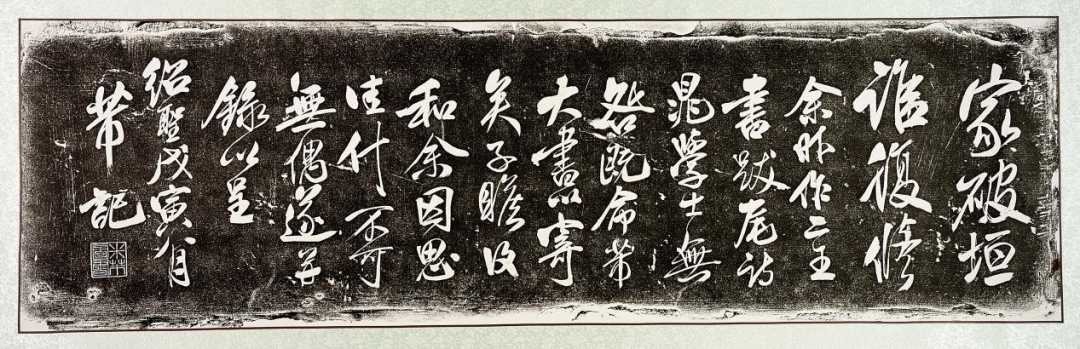 家破垣
誰復修
余昨作二王
書跋尾詩
晁學士無
咎既命芾
大書以寄
矣子瞻
和余因思
佳什不可
無偶遂并
錄以呈
紹聖戊寅八月
芾記